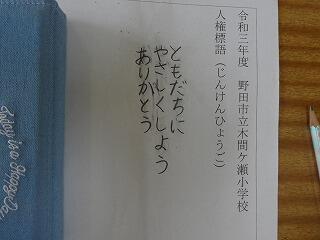 令和三年度　野田市立木間ケ瀬小学校
人権標語（じんけんひょうご）
ともだちに
やさしくしよう
ありがとう
Today is a Happy Da